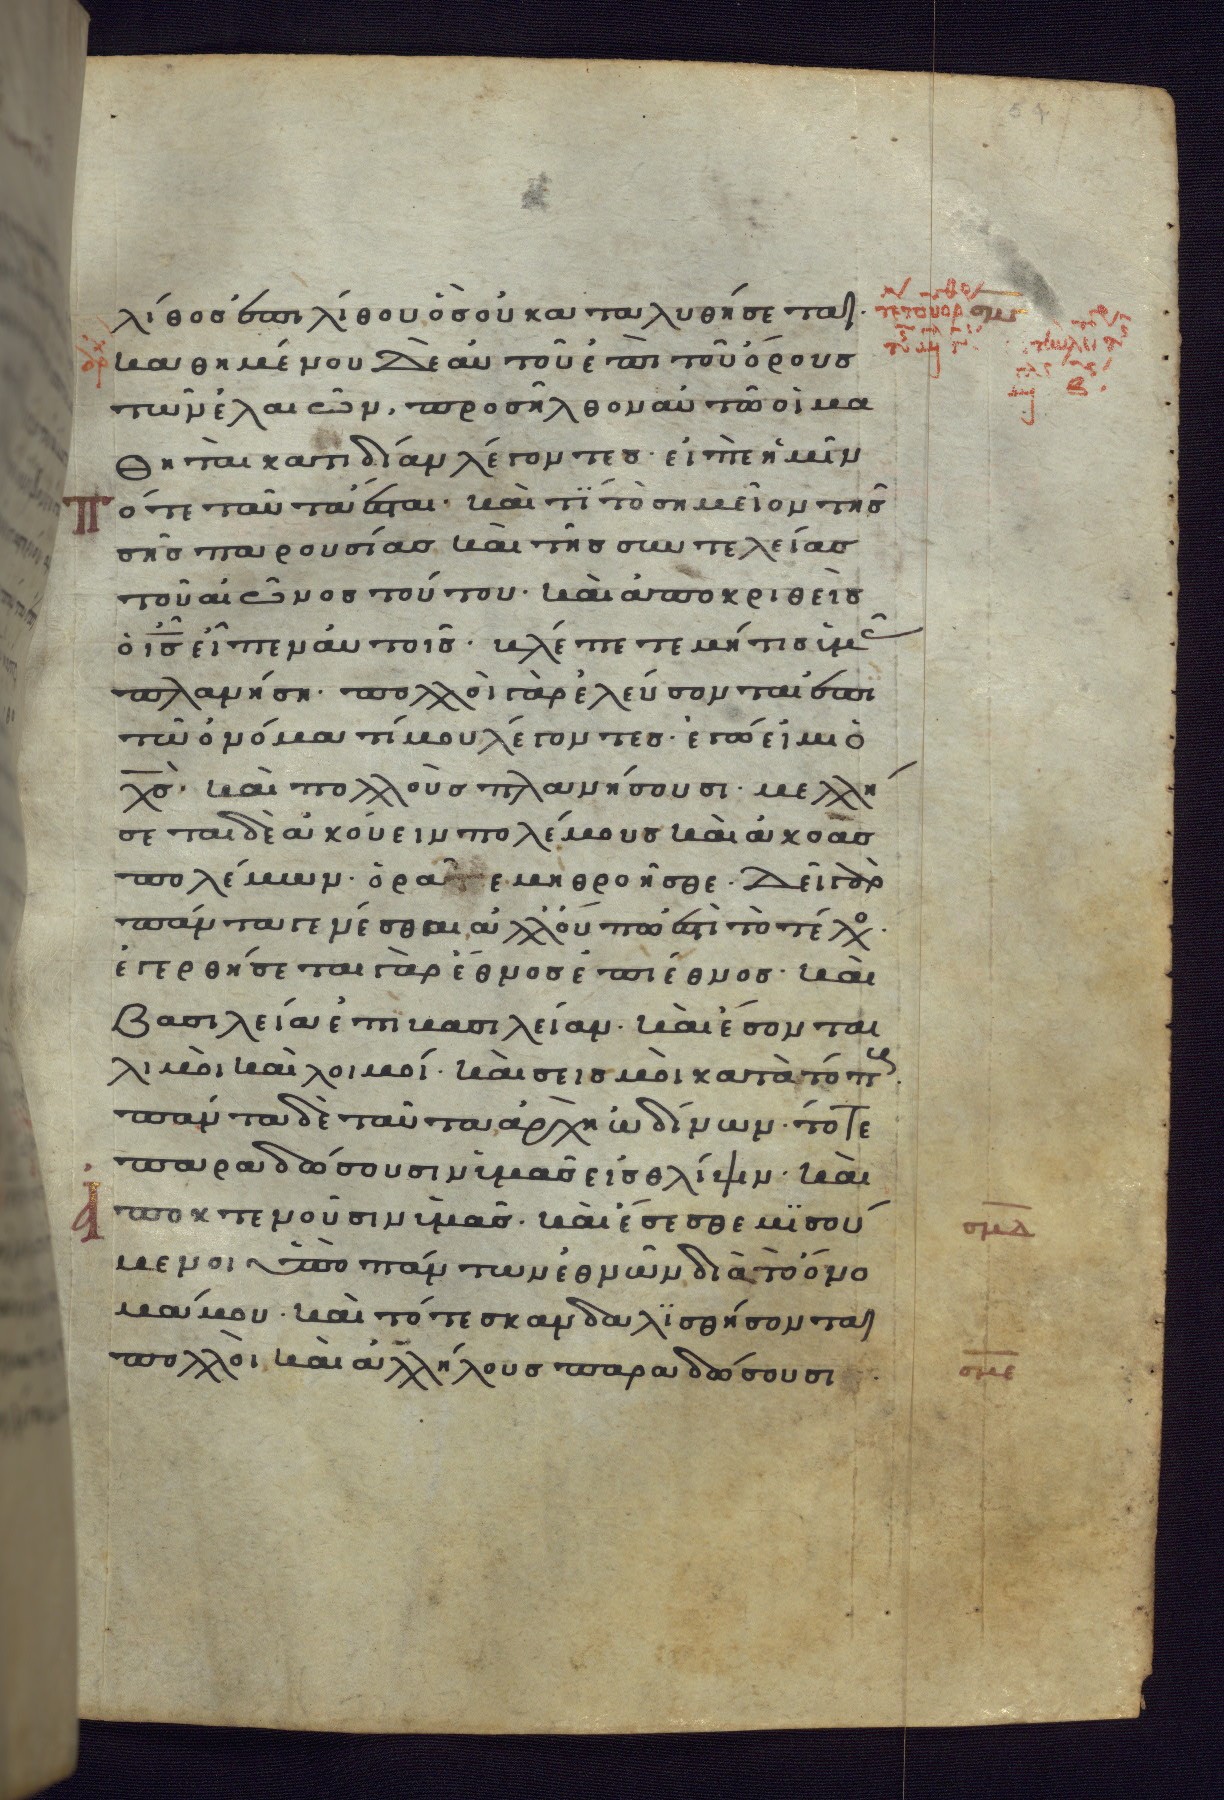 λίθος ἐπι λίθον ὃς οὐ καταλυθήσεται.
καθημένου δὲ αὐτοῦ ἐπι τοῦ ὄρους
τῶν ἐλαιῶν, προσῆλθον αὐτῶ οἱ μα
θηται κατιδίαν λέγοντες· εἰπὲ ἡμῖν
πότε ταῦτα ἔσται· καὶ τί τὸ σημεῖον τῆς
σῆς παρουσίας καὶ τῆς συντελείας
τοῦ αἰῶνος τούτου· καὶ ἀποκριθεὶς
ὁ ις εἶπεν αὐτοῖς· βλέπετε μήτις ὑμᾶς
πλανήση· πολλοὶ γὰρ ἐλεύσονται ἐπι
τῶ ὀνόματί μου λέγοντες· ἐγώ εἰμι ὁ
χς· καὶ πολλοὺς πλανήσουσι· μελλή
σεται δὲ ἀκούειν πολέμους καὶ ἀκοὰς
πολέμων· ὁρᾶτε μὴ θροῆσθε· δεῖ γὰρ
πάντα γενέσθαι ἀλλ' οὔπω ἐστὶ τὸ τέλος·
ἐγερθήσεται γὰρ ἔθνος ἐπι ἔθνος· καὶ
βασιλεία ἐπι βασιλείαν· καὶ ἔσονται
λιμοὶ καὶ λοιμοί· καὶ σεισμοὶ κατὰ τόπους.
πάντα δὲ ταῦτα ἀρχὴ ὠδίνων· τότε
παραδώσουσιν ὑμᾶς εἰς θλίψιν· καὶ
ἀποκτενοῦσιν ὑμᾶς· καὶ ἔσεσθε μισού
μενοι ὑπὸ πάντων ἐθνῶν διὰ τὸ ὄνο
μά μου· καὶ τότε σκανδαλισθήσονται
πολλοὶ καὶ ἀλλήλους παραδώσουσι
σμδ
σμε